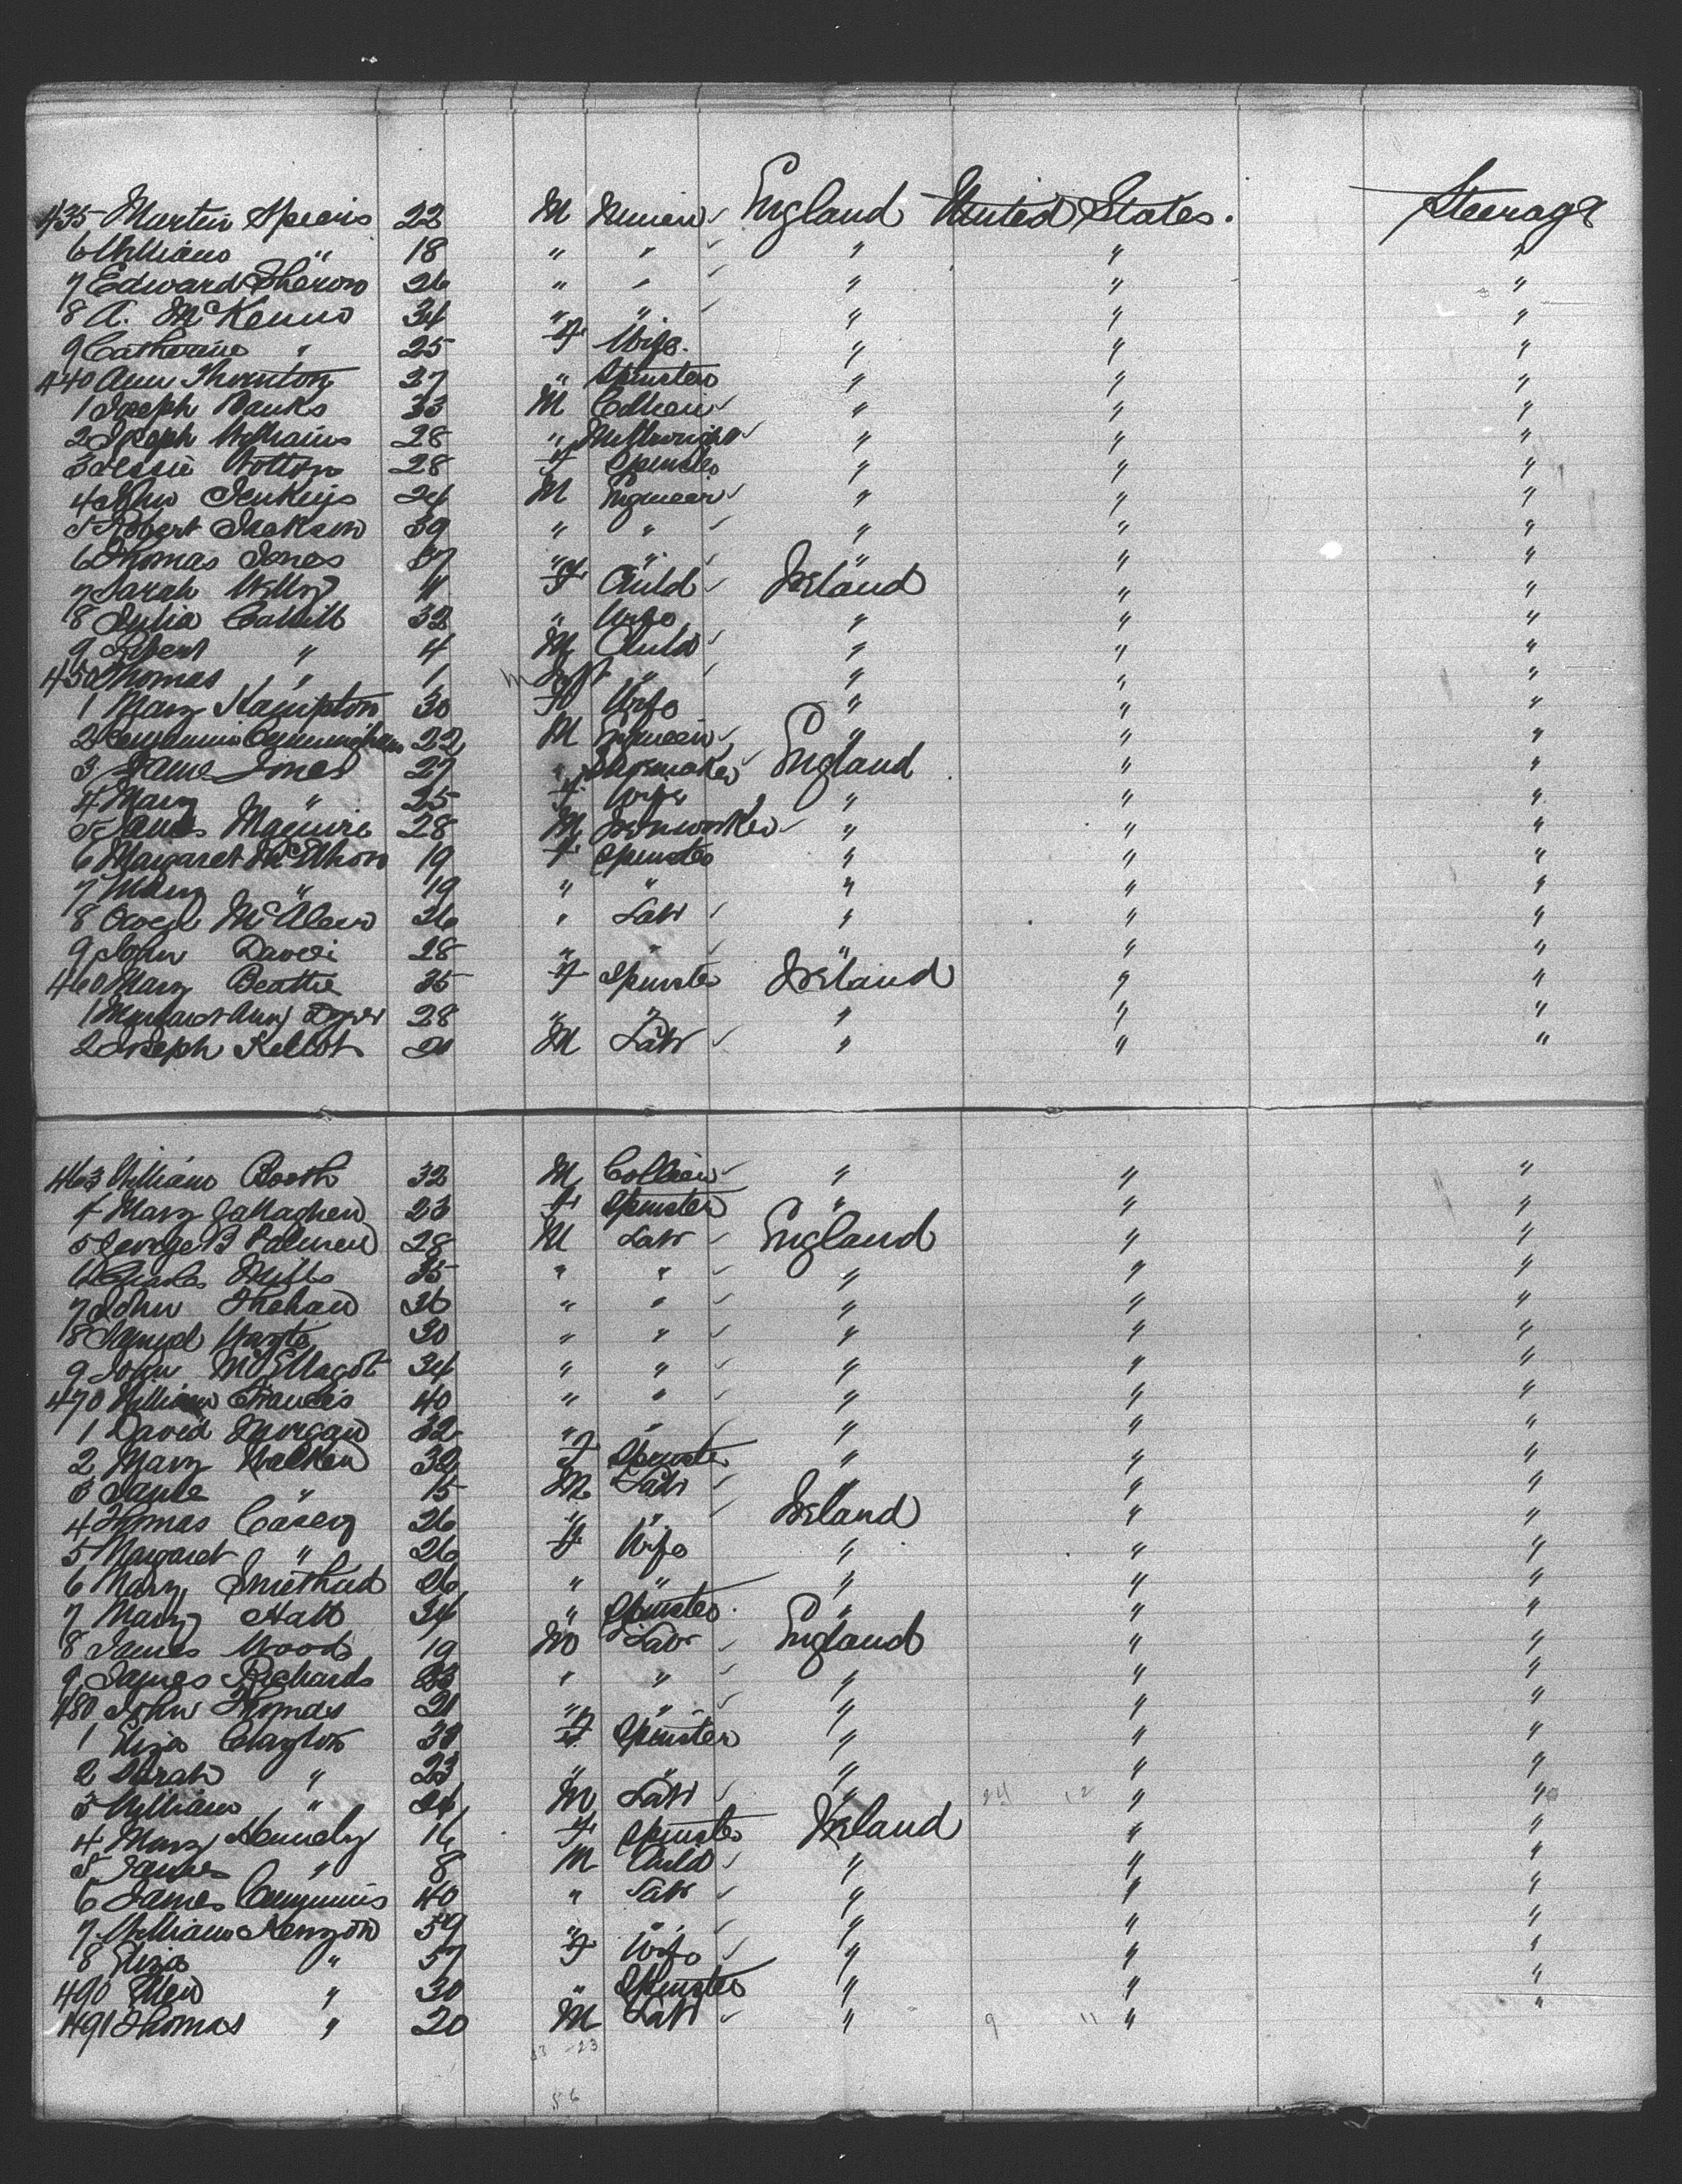 435 Martin Speeris 22 M Miner England United States. Steerage
6 William " 18 " " " " "
7 Edward Sheron 26 " " " " "
8 A. McKenna 34 " " " " "
9 Catherine " 25 F Wife. " " "
440 Ann Thornton 27 " Spinster " " "
1 Joseph Banks 33 M Collier " " "
2 Joseph Williams 28 " Millwright " " "
3 Jessie Votton 28 F Spinster " " "
4 John Jenkins 24 M Engineer " " "
5 Robert Jackson 39 " " " " "
6 Thomas Jones 37 " " " " "
7 Sarah 11 F Child Ireland " "
8 Julia Cahill 32 " Wife " " "
9 Robert " 4 M Child " " "
450 Thomas " 1 Inft " " " "
1 Mary Hampton 30 F Wife " " "
2 Benjamin Cunningham 22 M Engineer " " "
3 Jame Jones 27 " Shoemaker England " "
4 Mary " 25 F Wife " " "
5 James Maguire 28 M Ironworker " " "
6 Margaret McElhon 19 F Spinster " " "
7 Mary " 19 " " " " "
8 Owen McAleer 26 " Labr " " "
9 John Davei 28 " " " " "
460 Mary Beattie 35 F Spinster Ireland " "
1 Margaret Ann Dyer 28 " " " " "
2 Joseph Kellot 20 M Labr " " "
463 William Booth 32 M Collier " " "
4 Mary Gallagher 23 F Spinster " " "
5 George B Palmer 28 M Labr England " "
6 Charles Mills 35 " " " " "
7 John Shehan 36 " " " " "
8 Samuel 30 " " " " "
9 John McEllagot 34 " " " " "
470 William Francis 40 " " " " "
1 David Morgan 32 " " " " "
2 Mary Walker 39 F Spinster " " "
3 Jame " 15 M Labr " " "
4 Thomas Casey 26 " " Ireland " "
5 Margaret " 26 F Wife " " "
6 Mary 26 " " " " "
7 Mary Hall 34 " Spinster " " "
8 James Wood 19 M Labr England " "
9 James Richards 23 " " " " "
480 John Thomas 21 " " " " "
1 Eliza Clayton 30 F Spinster " " "
2 Sarah " 23 " " " " "
3 William " 24 M Labr " 24 12 " "
4 Mary Kennedy 16 F Spinster Ireland " "
5 James " 8 M Child " " "
6 James Cummins 40 " Labr " " "
7 William Kenyon 59 " " " " "
8 Eliza " 57 F Wife " " "
490 Ellen " 30 " Spinster " " "
491 Thomas " 20 M Labr " 9 11 " "
33 - 23
56